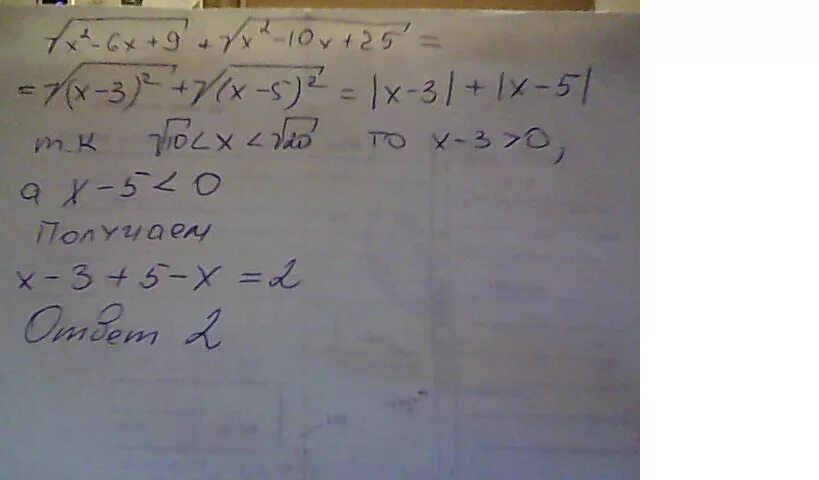 √x²-6x+9 + √x²-10x+25 =
= √(x-3)² + √(x-5)² = |x-3| + |x-5|
т.к √10 < x < √20 то x-3>0,
а x-5<0
Получаем
x-3+5-x=2
Ответ 2